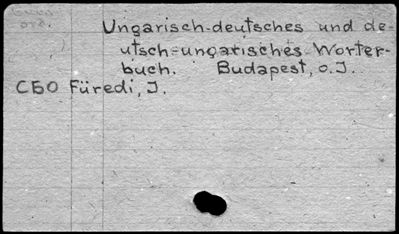 Ungarisch-deutsches und de-
utsch-ungarisches Wörter-
buch. Budapest, o. J.
СБО Füredi, I.